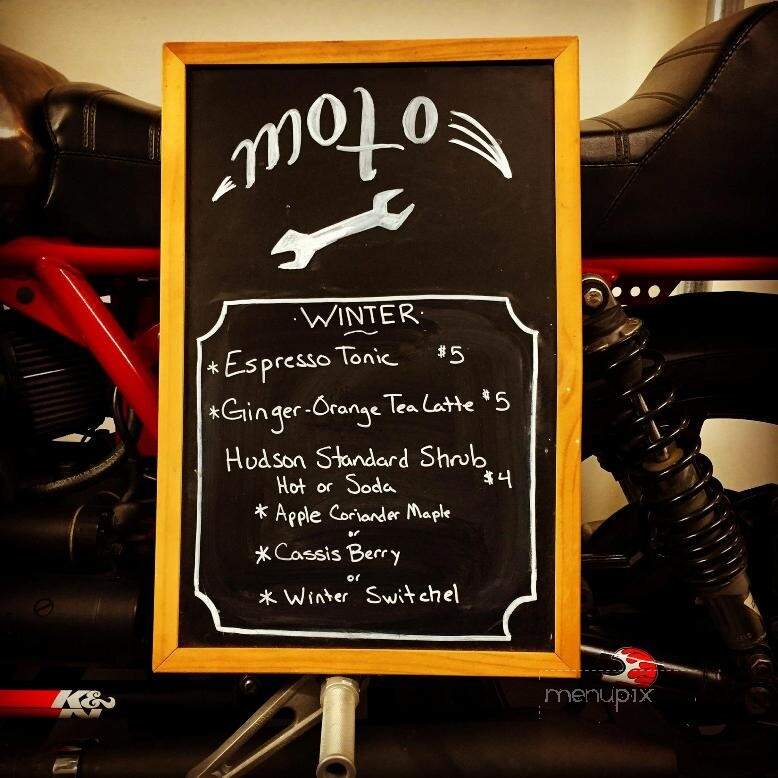 moto
·WINTER·
*Espresso Tonic $5
*Ginger-Orange Tea Latte $5
Hudson Standard Shrub
Hot or Soda $4
* Apple Coriander Maple
or
* Cassis Berry
or
* Winter Switchel
K&N
menupix